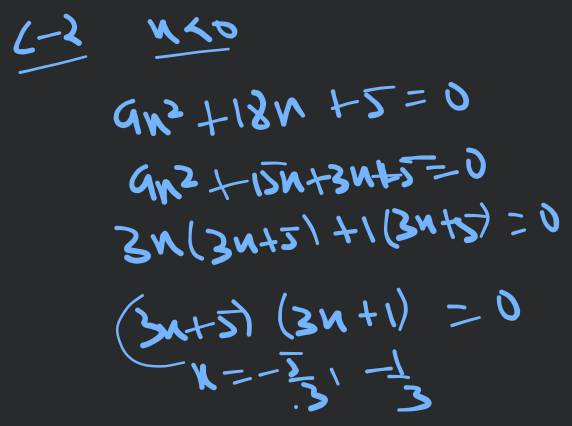 C-2 x<0
9x²+18x+5=0
9x²+15x+3x+5=0
3x(3x+5)+1(3x+5)=0
(3x+5)(3x+1)=0
x=-5/3, -1/3